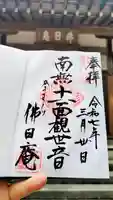 奉拝
令和七年
三月廿日
南無十一面観世音
佛日庵